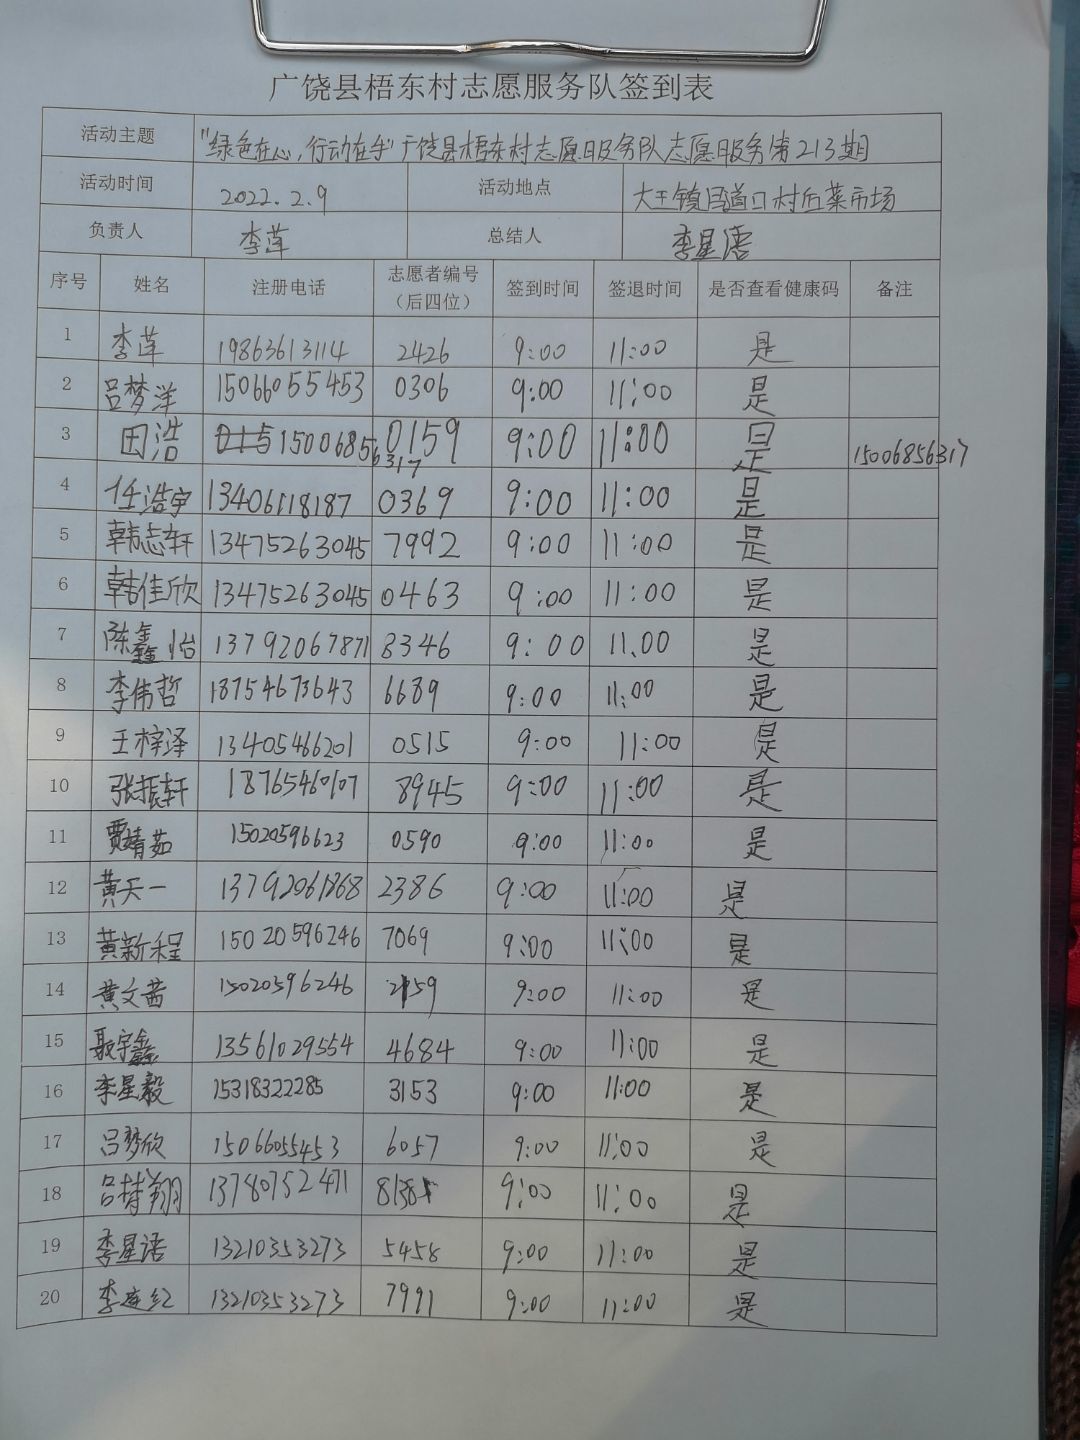 广饶县梧东村志愿服务队签到表
活动主题 "绿色在心,行动在手"广饶县梧东村志愿服务队志愿服务第213期
活动时间 2022.2.9 活动地点 大王镇闫道口村后菜市场
负责人 李莲 总结人 李星语
序号 姓名 注册电话 志愿者编号(后四位) 签到时间 签退时间 是否查看健康码 备注
1 李莲 19863613114 2426 9:00 11:00 是
2 吕梦洋 15066055453 0306 9:00 11:00 是
3 田浩 15006856317 0159 9:00 11:00 是 15006856317
4 任浩宇 13406118187 0369 9:00 11:00 是
5 韩志轩 13475263045 7992 9:00 11:00 是
6 韩佳欣 13475263045 0463 9:00 11:00 是
7 陈鑫怡 13792067871 8346 9:00 11.00 是
8 李伟哲 18754673643 6689 9:00 11:00 是
9 王梓泽 13405466201 0515 9:00 11:00 是
10 张振轩 18765460107 8945 9:00 11:00 是
11 贾婧茹 15020596623 0590 9:00 11:00 是
12 黄天一 13792061868 2386 9:00 11:00 是
13 黄新程 15020596246 7069 9:00 11:00 是
14 黄文茜 15020596246 2159 9:00 11:00 是
15 聂宇鑫 13561029554 4684 9:00 11:00 是
16 李星毅 15318322285 3153 9:00 11:00 是
17 吕梦欣 15066055453 6057 9:00 11:00 是
18 吕梦翔 13780752471 8138 9:00 11:00 是
19 李星语 13210353273 5458 9:00 11:00 是
20 李连红 13210353273 7991 9:00 11:00 是